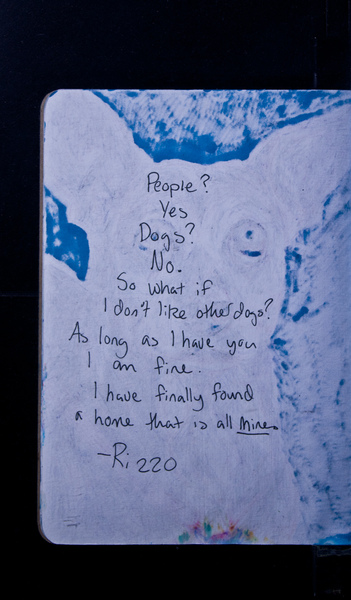 People?
Yes
Dogs?
No.
So what if
I don't like other dogs?
As long as I have you
I am fine.
I have finally found
a home that is all mine.
-Rizzo